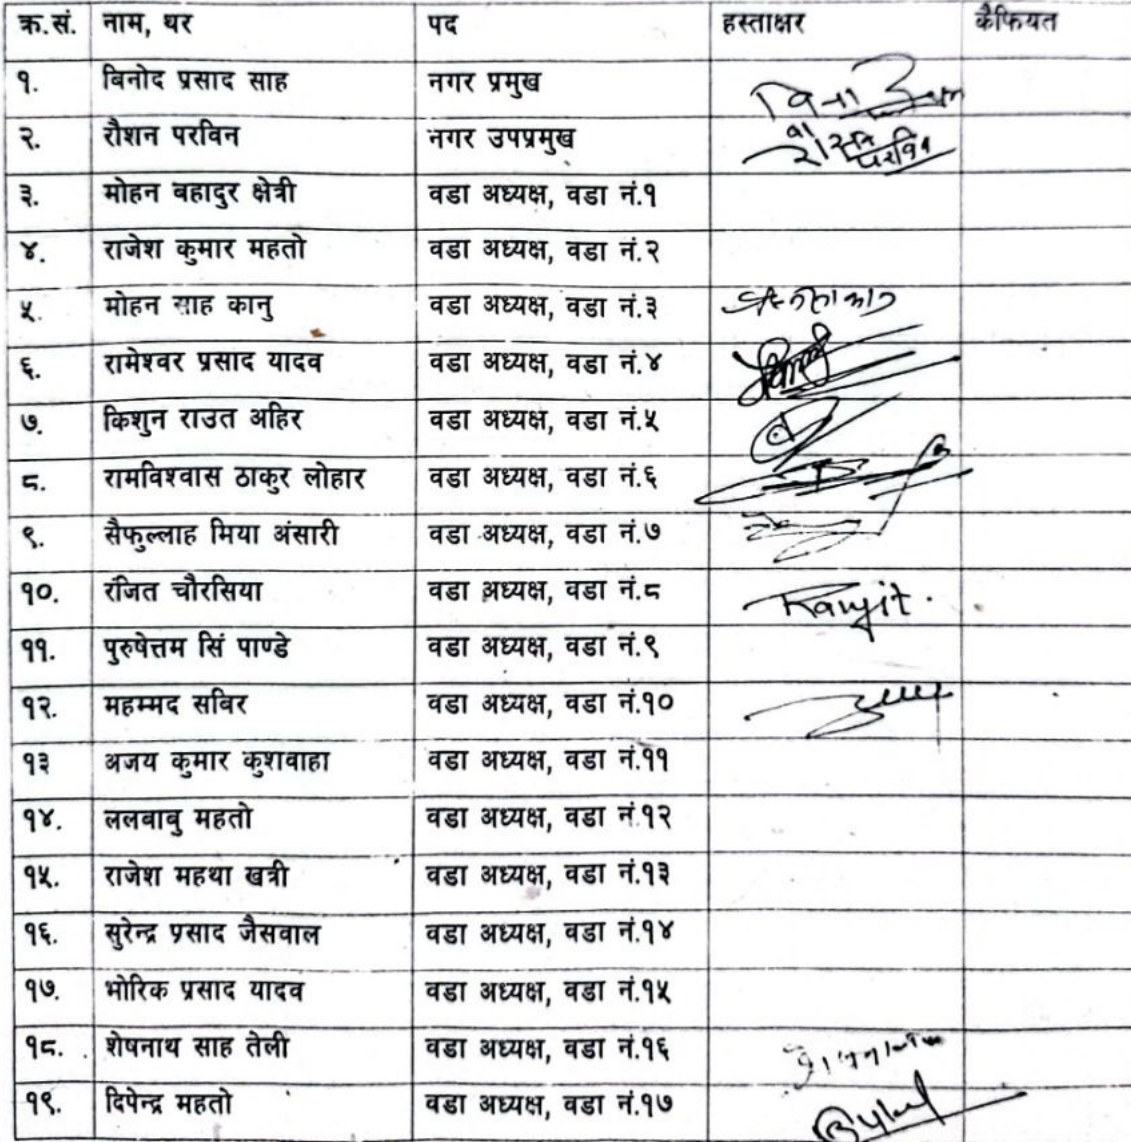 क्र.सं. नाम, थर पद हस्ताक्षर कैफियत
१. बिनोद प्रसाद साह नगर प्रमुख
२. रौशन परविन नगर उपप्रमुख
३. मोहन बहादुर क्षेत्री वडा अध्यक्ष, वडा नं.१
४. राजेश कुमार महतो वडा अध्यक्ष, वडा नं.२
५. मोहन साह कानु वडा अध्यक्ष, वडा नं.३
६. रामेश्वर प्रसाद यादव वडा अध्यक्ष, वडा नं.४
७. किशुन राउत अहिर वडा अध्यक्ष, वडा नं.५
८. रामविश्वास ठाकुर लोहार वडा अध्यक्ष, वडा नं.६
९. सैफुल्लाह मिया अंसारी वडा अध्यक्ष, वडा नं.७
१०. रंजित चौरसिया वडा अध्यक्ष, वडा नं.८ Ranjit.
११. पुरुषेत्तम सिं पाण्डे वडा अध्यक्ष, वडा नं.९
१२. महम्मद सबिर वडा अध्यक्ष, वडा नं.१०
१३ अजय कुमार कुशवाहा वडा अध्यक्ष, वडा नं.११
१४. ललबाबु महतो वडा अध्यक्ष, वडा नं.१२
१५. राजेश महथा खत्री वडा अध्यक्ष, वडा नं.१३
१६. सुरेन्द्र प्रसाद जैसवाल वडा अध्यक्ष, वडा नं.१४
१७. भोरिक प्रसाद यादव वडा अध्यक्ष, वडा नं.१५
१८. शेषनाथ साह तेली वडा अध्यक्ष, वडा नं.१६
१९. दिपेन्द्र महतो वडा अध्यक्ष, वडा नं.१७